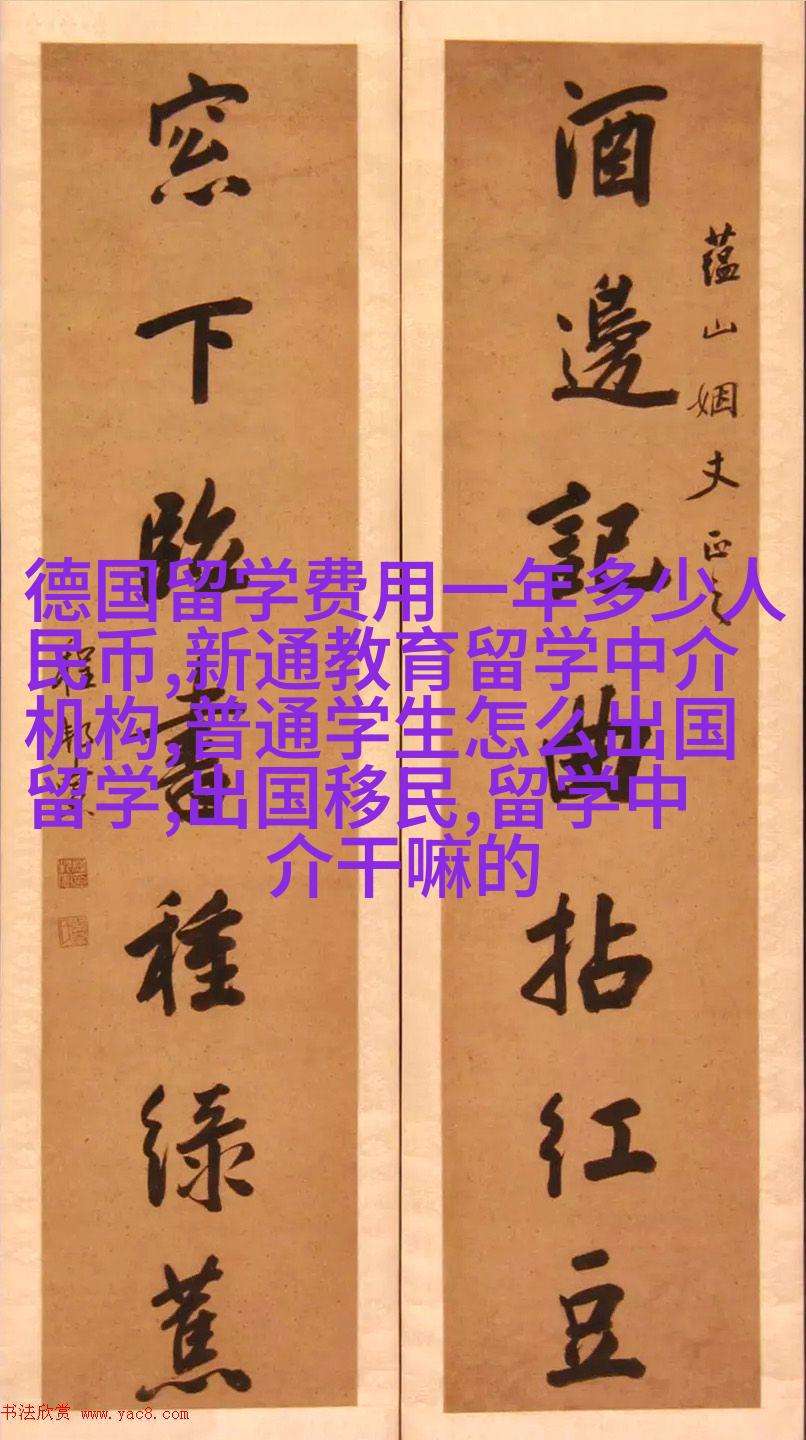 蘊山姻丈正之
酒邊記曲拈紅豆
窓下臨書種綠蕉
德国留学费用一年多少人
民币,新通教育留学中介
机构,普通学生怎么出国
留学,出国移民,留学中
介干嘛的
书法欣赏 www.yac8.com